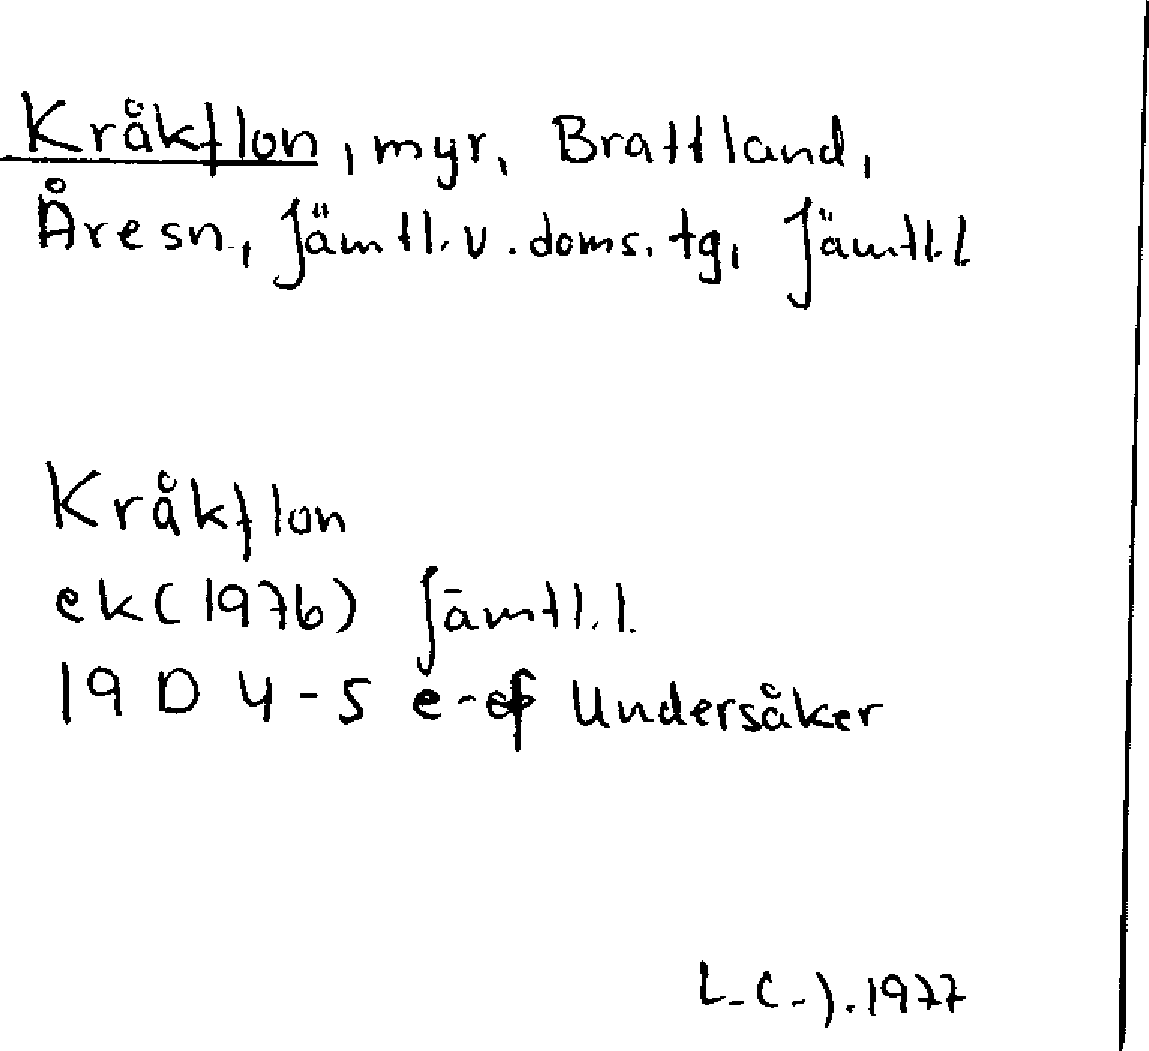 Kråkflon, myr, Brattland,
Åre sn, Jämtl.v.doms.tg, Jämtl.l
Kråkflon
ek(1976) Jämtl.l.
19 D 4-5 e-f Undersåker
L-C-J.1977